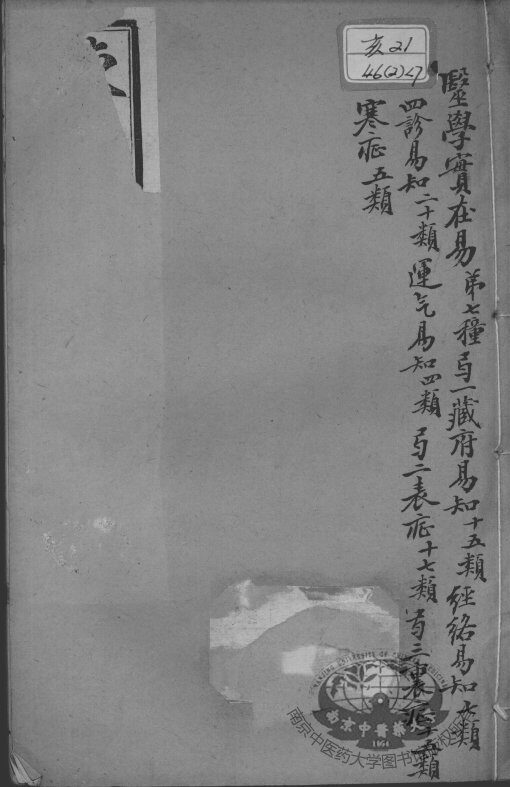 醫學實在易第七種卷一藏府易知十五類經絡易知七類
四診易知二十類運气易知四類卷二表症十七類卷三裏症五類
寒症五類
亥21
46(2)<7
南京中医药大学图书馆
1954